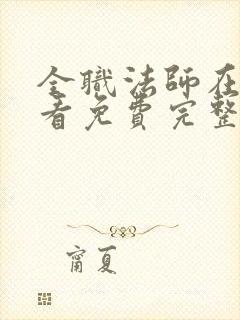 全職法師在
看免費完整
甯夏